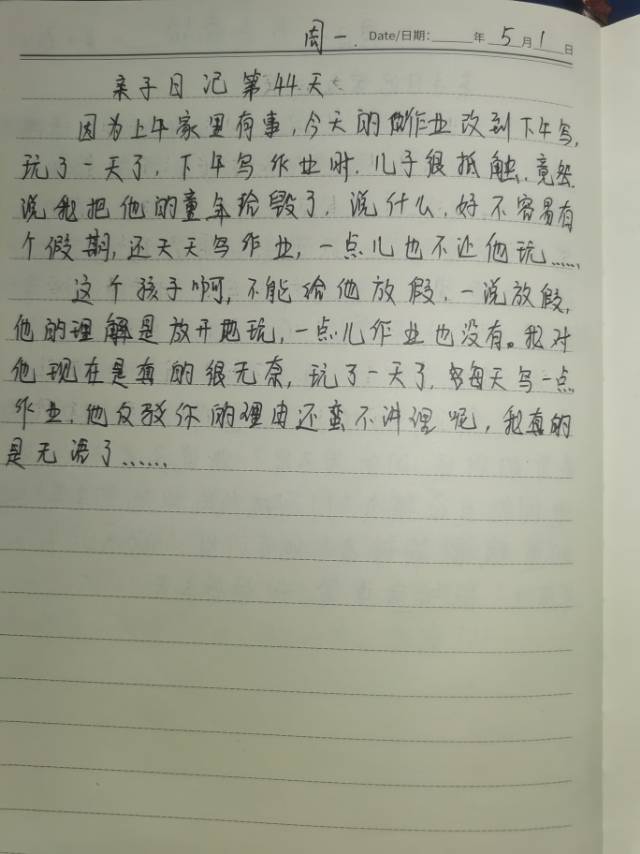 周一. Date/日期: 年 5月1日
亲子日记第44天
因为上午家里有事,今天的做作业改到下午写,
玩了一天了,下午写作业时,儿子很抵触,竟然
说我把他的童年给毁了,说什么,好不容易有
个假期,还天天写作业,一点儿也不让他玩……
这个孩子啊,不能给他放假,一说放假,
他的理解是放开地玩,一点儿作业也没有。我对
他现在是真的很无奈,玩了一天了,每天写一点
作业,他反驳你的理由还蛮不讲理呢,我真的
是无语了……